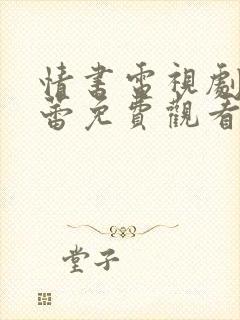 情書電視劇
蕾免費觀看
堂子